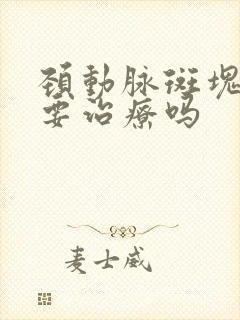 頚動脉斑塊
要治療吗
麦士威